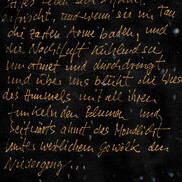 erfrischt, und wenn sie im Tau
die zarten Arme baden, und
die Nachtluft kühlend sie
umatmet und durchdringt,
und über uns blickt die
des Himmels mit all ihren
funkelnden Blumen und
seitwärts atmet das Mondlicht
unter westlichem Gewölk den
Niedergang...